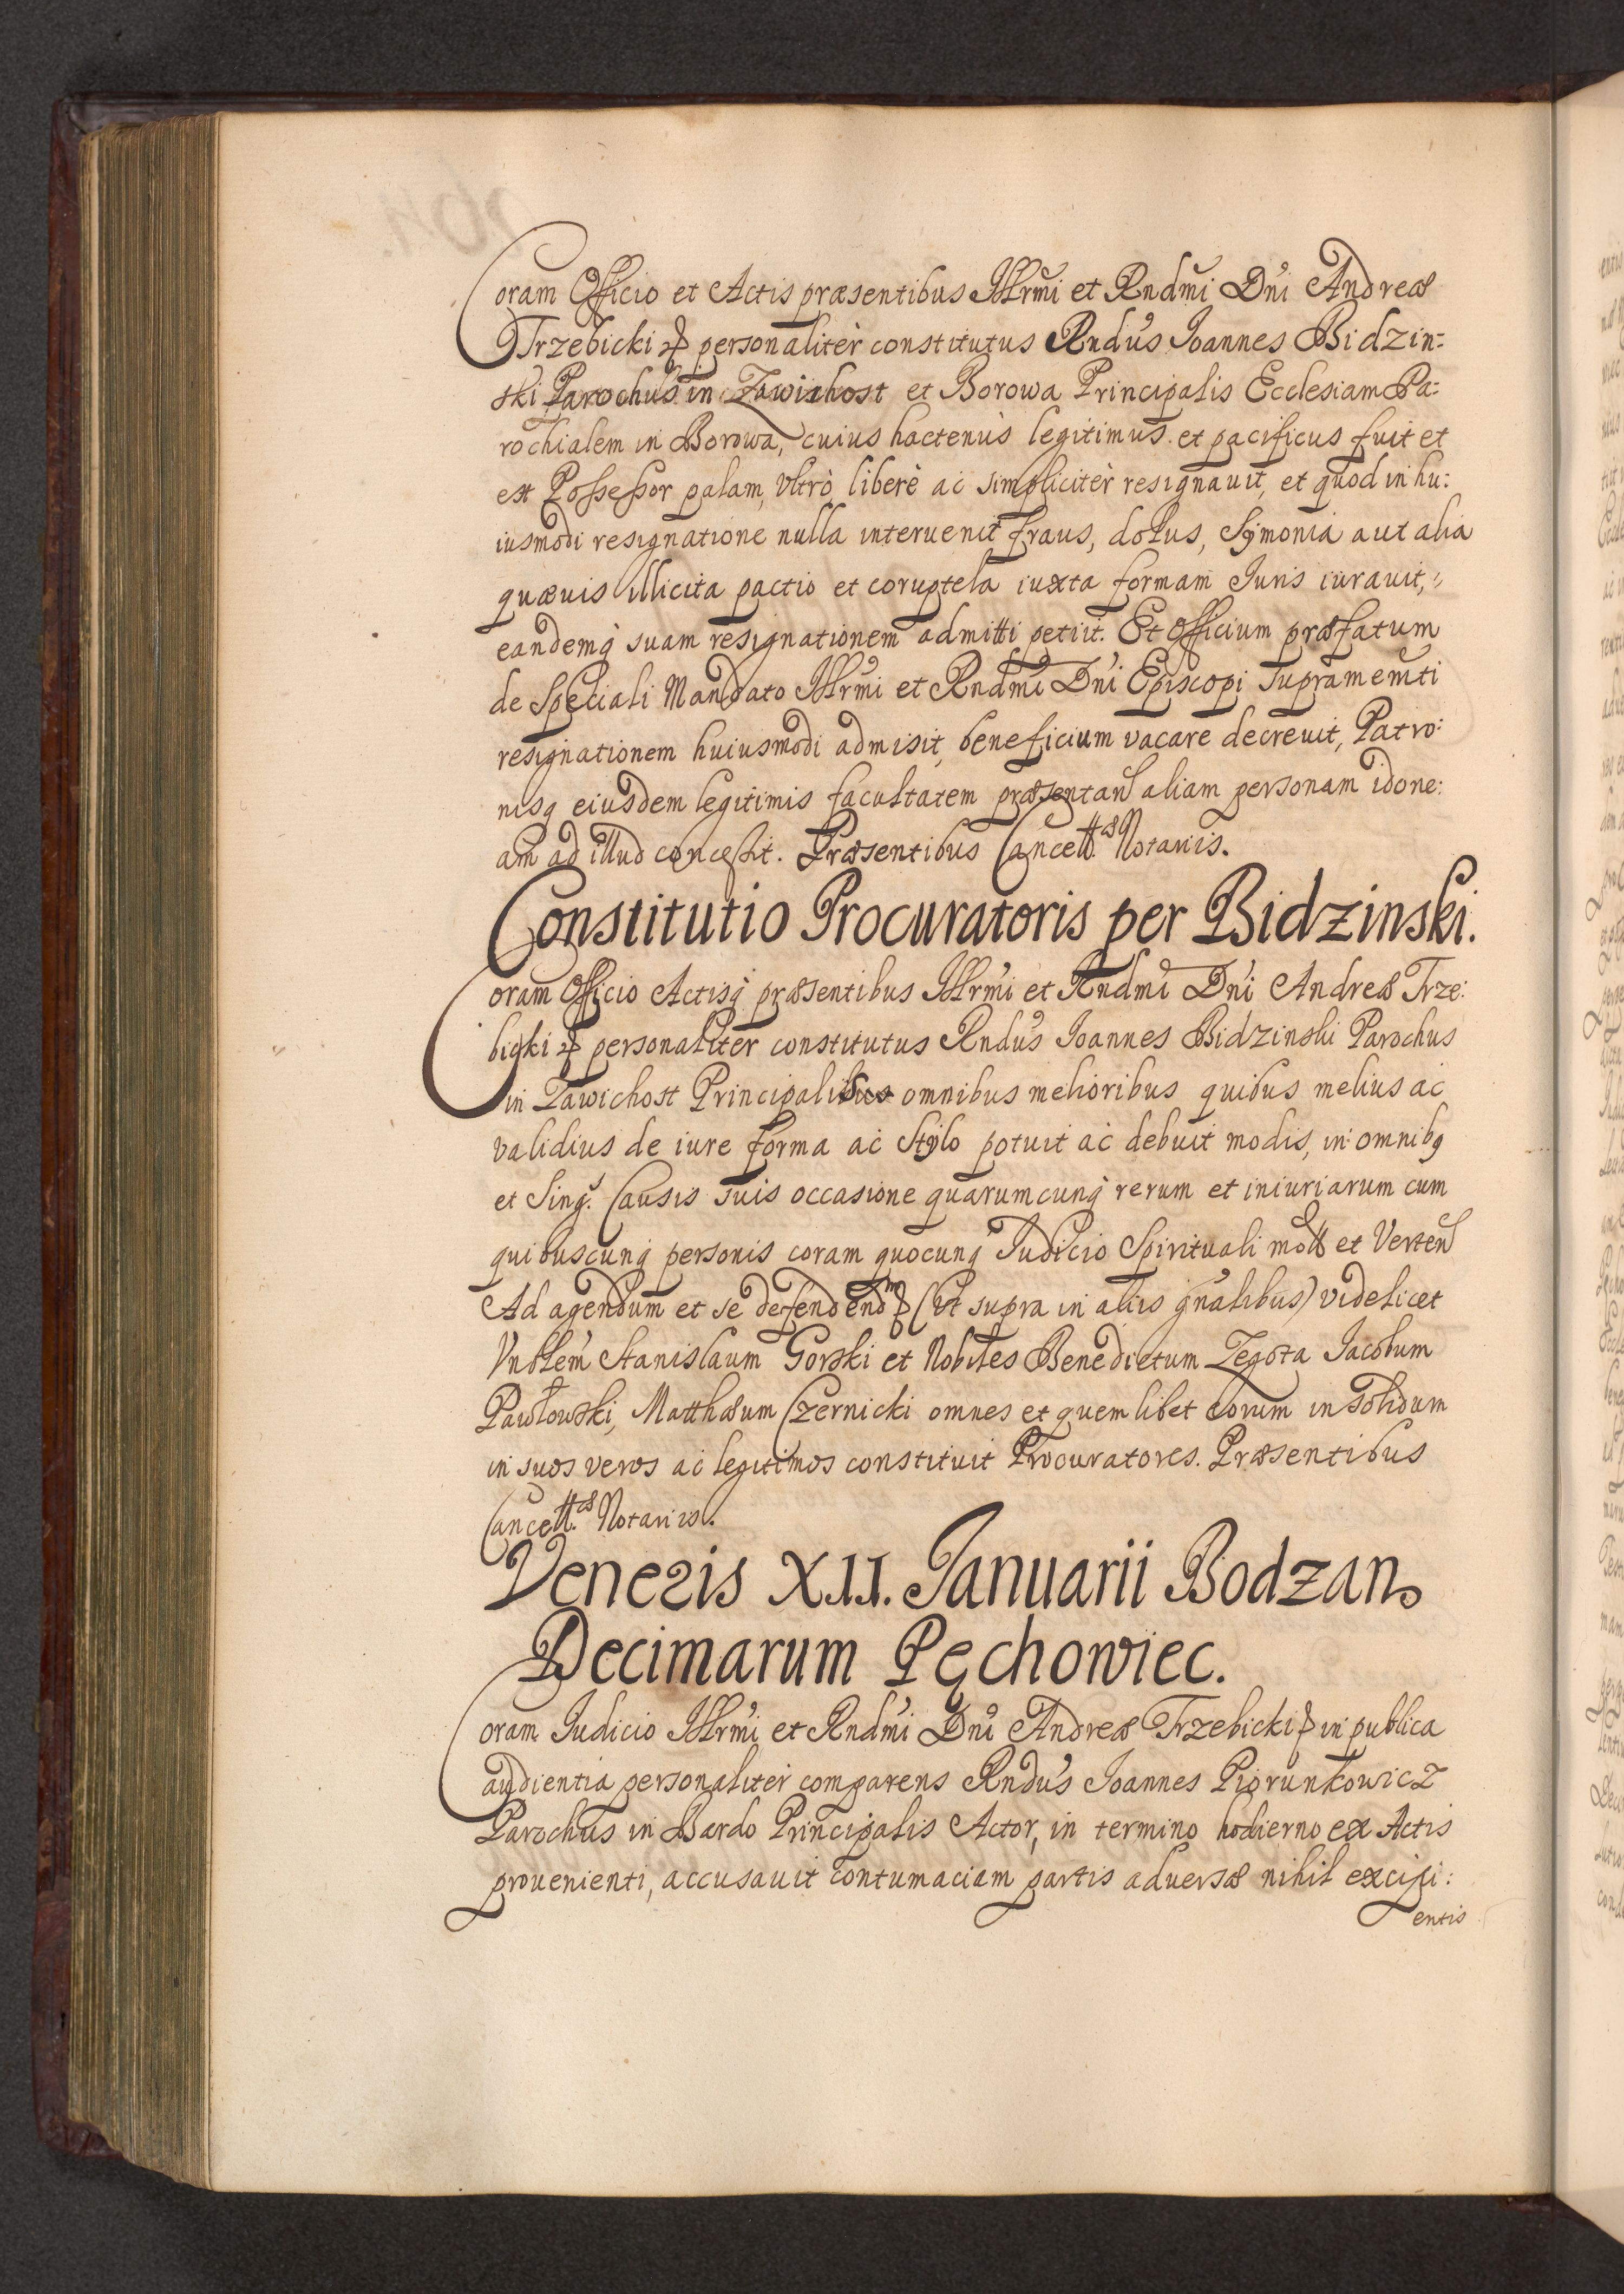 Coram Officio et Actis præsentibus Illrmi et Rndmi Dni Andreæ
Trzebicki &c personalitèr constitutus Rndus Ioannes Bidzin=
ski Parochus in Zawichost et Borowa Principalis Ecclesiam Pa=
rochialem in Borowa, cuius hactenùs legitimus et pacificus fuit et
est Possessor palam, vltrò, liberè ac simplicitèr resignauit, et quod in hu:
iusmodi resignatione nulla interuenit fraus, dolus, Symonia aut alia
quæuis illicita pactio et coruptela iuxta formam Iuris iurauit,
eandemq suam resignationem admitti petiit. Et Officium præfatum
de Speciali Mandato Illrmi et Rndmi Dni Episcopi supramemti
resignationem huiusmodi admisit, beneficium vacare decreuit, Patro:
nisq eiusdem legitimis facultatem præsentand aliam personam idone:
am ad illud concessit. Præsentibus Cancell. Notariis.
Constitutio Procuratoris per Bidzinski.
Coram Officio Actisq præsentibus Illrmi et Rndmi Dni Andreæ Trze:
bicki &c personaliter constitutus Rndus Ioannes Bidzinski Parochus
in Zawichost Principalibus omnibus melioribus quibus melius ac
validius de iure forma ac Stylo potuit ac debuit modis, in omnibq
et Sing. Causis suis occasione quarumcunq rerum et iniuriarum cum
quibuscunq personis coram quocunq Iudicio Spirituali mott et Verten
Ad agendum et se defendendm &c (vt supra in aliis gnalibus) videlicet
Vnblem Stanislaum Gorski et Nobiles Benedictum Zegota Iacobum
Pawłowski, Matthæum Czernicki omnes et quemlibet eorum in solidum
in suos veros ac legitimos constituit Procuratores. Præsentibus
Cancell. Notariis.
Veneris XII. Ianuarii Bodzan.
Decimarum Pęchowiec.
Coram Iudicio Illrmi et Rndmi Dni Andreæ Trzebicki &c in publica
audientia personalitèr comparens Rndus Ioannes Piorunkowicz
Parochus in Bardo Principalis Actor, in termino hodierno ex Actis
prouenienti, accusauit contumaciam partis aduersæ nihil excipi:
entis